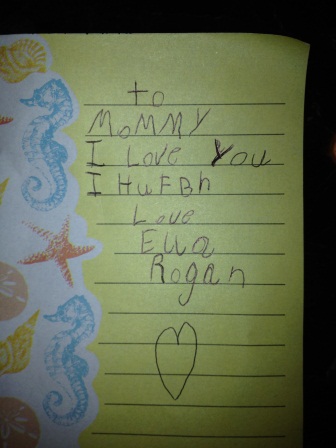 to
MoMMY
I Love You
I HuFBh
Love
Ella
Rogan